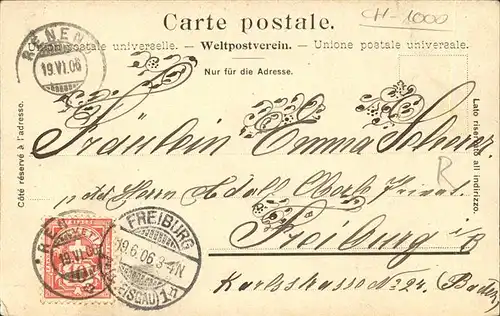 Carte postale.
CH-1000
Union postale universelle. — Weltpostverein. — Unione postale universale.
Nur für die Adresse.
RENEN
19.VI.06
Côté réservé à l'adresse.
Lato riservato all indirizzo.
Fräulein Emma
R
Herrn Adolf Oberle Privat.
Freiburg i/B
Karlsstrasse No 24. (Baden)
19.VI.06
FREIBURG
19.6.06 3-4N
(BREISGAU) 1n